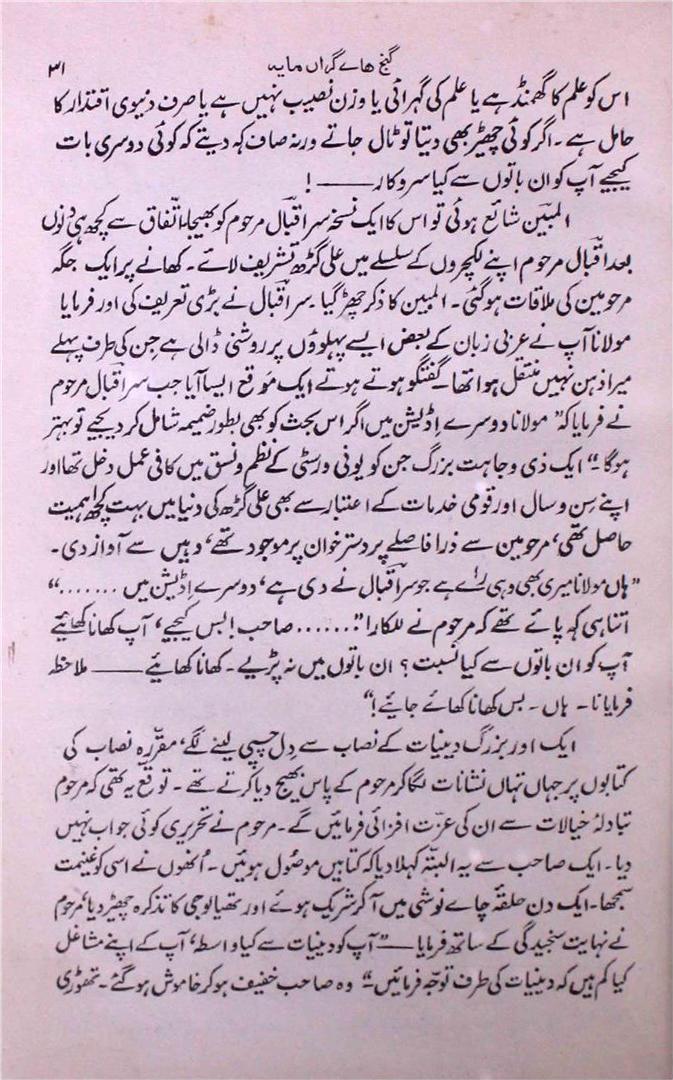 گنج ھائے گراں مایہ ۳۱
اس کو علم کا گھمنڈ ہے یا علم کی گہرائی یا وزن نصیب نہیں ہے یا صرف دنیوی اقتدار کا
حامل ہے۔ اگر کوئی چھیڑ بھی دیتا تو ٹال جاتے ورنہ صاف کہہ دیتے کہ کوئی دوسری بات
کیجیے آپ کو ان باتوں سے کیا سروکار ——— !
المبین شائع ہوئی تو اس کا ایک نسخہ سر اقبال مرحوم کو بھیجا۔ اتّفاق سے کچھ ہی دنوں
بعد اقبال مرحوم اپنے لکچروں کے سلسلے میں علی گڑھ تشریف لائے۔ کھانے پر ایک جگہ
مرحومین کی ملاقات ہوگئی۔ المبین کا ذکر چھڑ گیا۔ سر اقبال نے بڑی تعریف کی اور فرمایا
مولانا آپ نے عربی زبان کے بعض ایسے پہلوؤں پر روشنی ڈالی ہے جن کی طرف پہلے
میرا ذہن نہیں منتقل ہوا تھا۔ گفتگو ہوتے ہوتے ایک موقع ایسا آیا جب سر اقبال مرحوم
نے فرمایا کہ ”مولانا دوسرے اِڈیشن میں اگر اس بحث کو بھی بطور ضمیمہ شامل کر دیجیے تو بہتر
ہوگا۔“ ایک ذی وجاہت بزرگ جن کو یونی ورسٹی کے نظم و نسق میں کافی عمل دخل تھا اور
اپنے سِن و سال اور قومی خدمات کے اعتبار سے بھی علی گڑھ کی دنیا میں بہت کچھ اہمیت
حاصل تھی، مرحومین سے ذرا فاصلے پر دسترخوان پر موجود تھے، وہیں سے آواز دی۔
”ہاں مولانا میری بھی وہی رائے ہے جو سر اقبال نے دی ہے، دوسرے اِڈیشن میں .......“
اتنا ہی کہہ پائے تھے کہ مرحوم نے للکارا ”...... صاحب! بس کیجیے، آپ کھانا کھائیے
آپ کو ان باتوں سے کیا نسبت؟ ان باتوں میں نہ پڑیے۔ کھانا کھائیے ——— ملاحظہ
فرمایا نا۔ ہاں۔ بس کھانا کھائے جائیے!“
ایک اور بزرگ دینیات کے نصاب سے دِل چسپی لینے لگے، مقرّرہ نصاب کی
کتابوں پر جہاں تہاں نشانات لگا کر مرحوم کے پاس بھیج دیا کرتے تھے۔ توقّع یہ تھی کہ مرحوم
تبادلۂ خیالات سے ان کی عزّت افزائی فرمائیں گے۔ مرحوم نے تحریری کوئی جواب نہیں
دیا۔ ایک صاحب سے یہ البتّہ کہلا دیا کہ کتابیں موصُول ہوئیں۔ اُنھوں نے اسی کو غنیمت
سمجھا۔ ایک دن حلقۂ چائے نوشی میں آکر شریک ہوئے اور تھیالوجی کا تذکرہ چھیڑ دیا، مرحوم
نے نہایت سنجیدگی کے ساتھ فرمایا —— ”آپ کو دینیات سے کیا واسطہ، آپ کے اپنے مشاغل
کیا کم ہیں کہ دینیات کی طرف توجّہ فرمائیں۔“ وہ صاحب خفیف ہو کر خاموش ہو گئے۔ تھوڑی